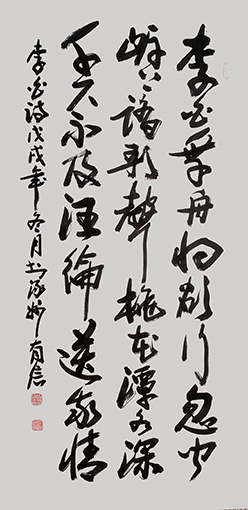 李白乘舟将欲行忽闻
岸上踏歌聲桃花潭水深
千尺不及汪倫送我情
李白诗戊戌年冬月书涿州